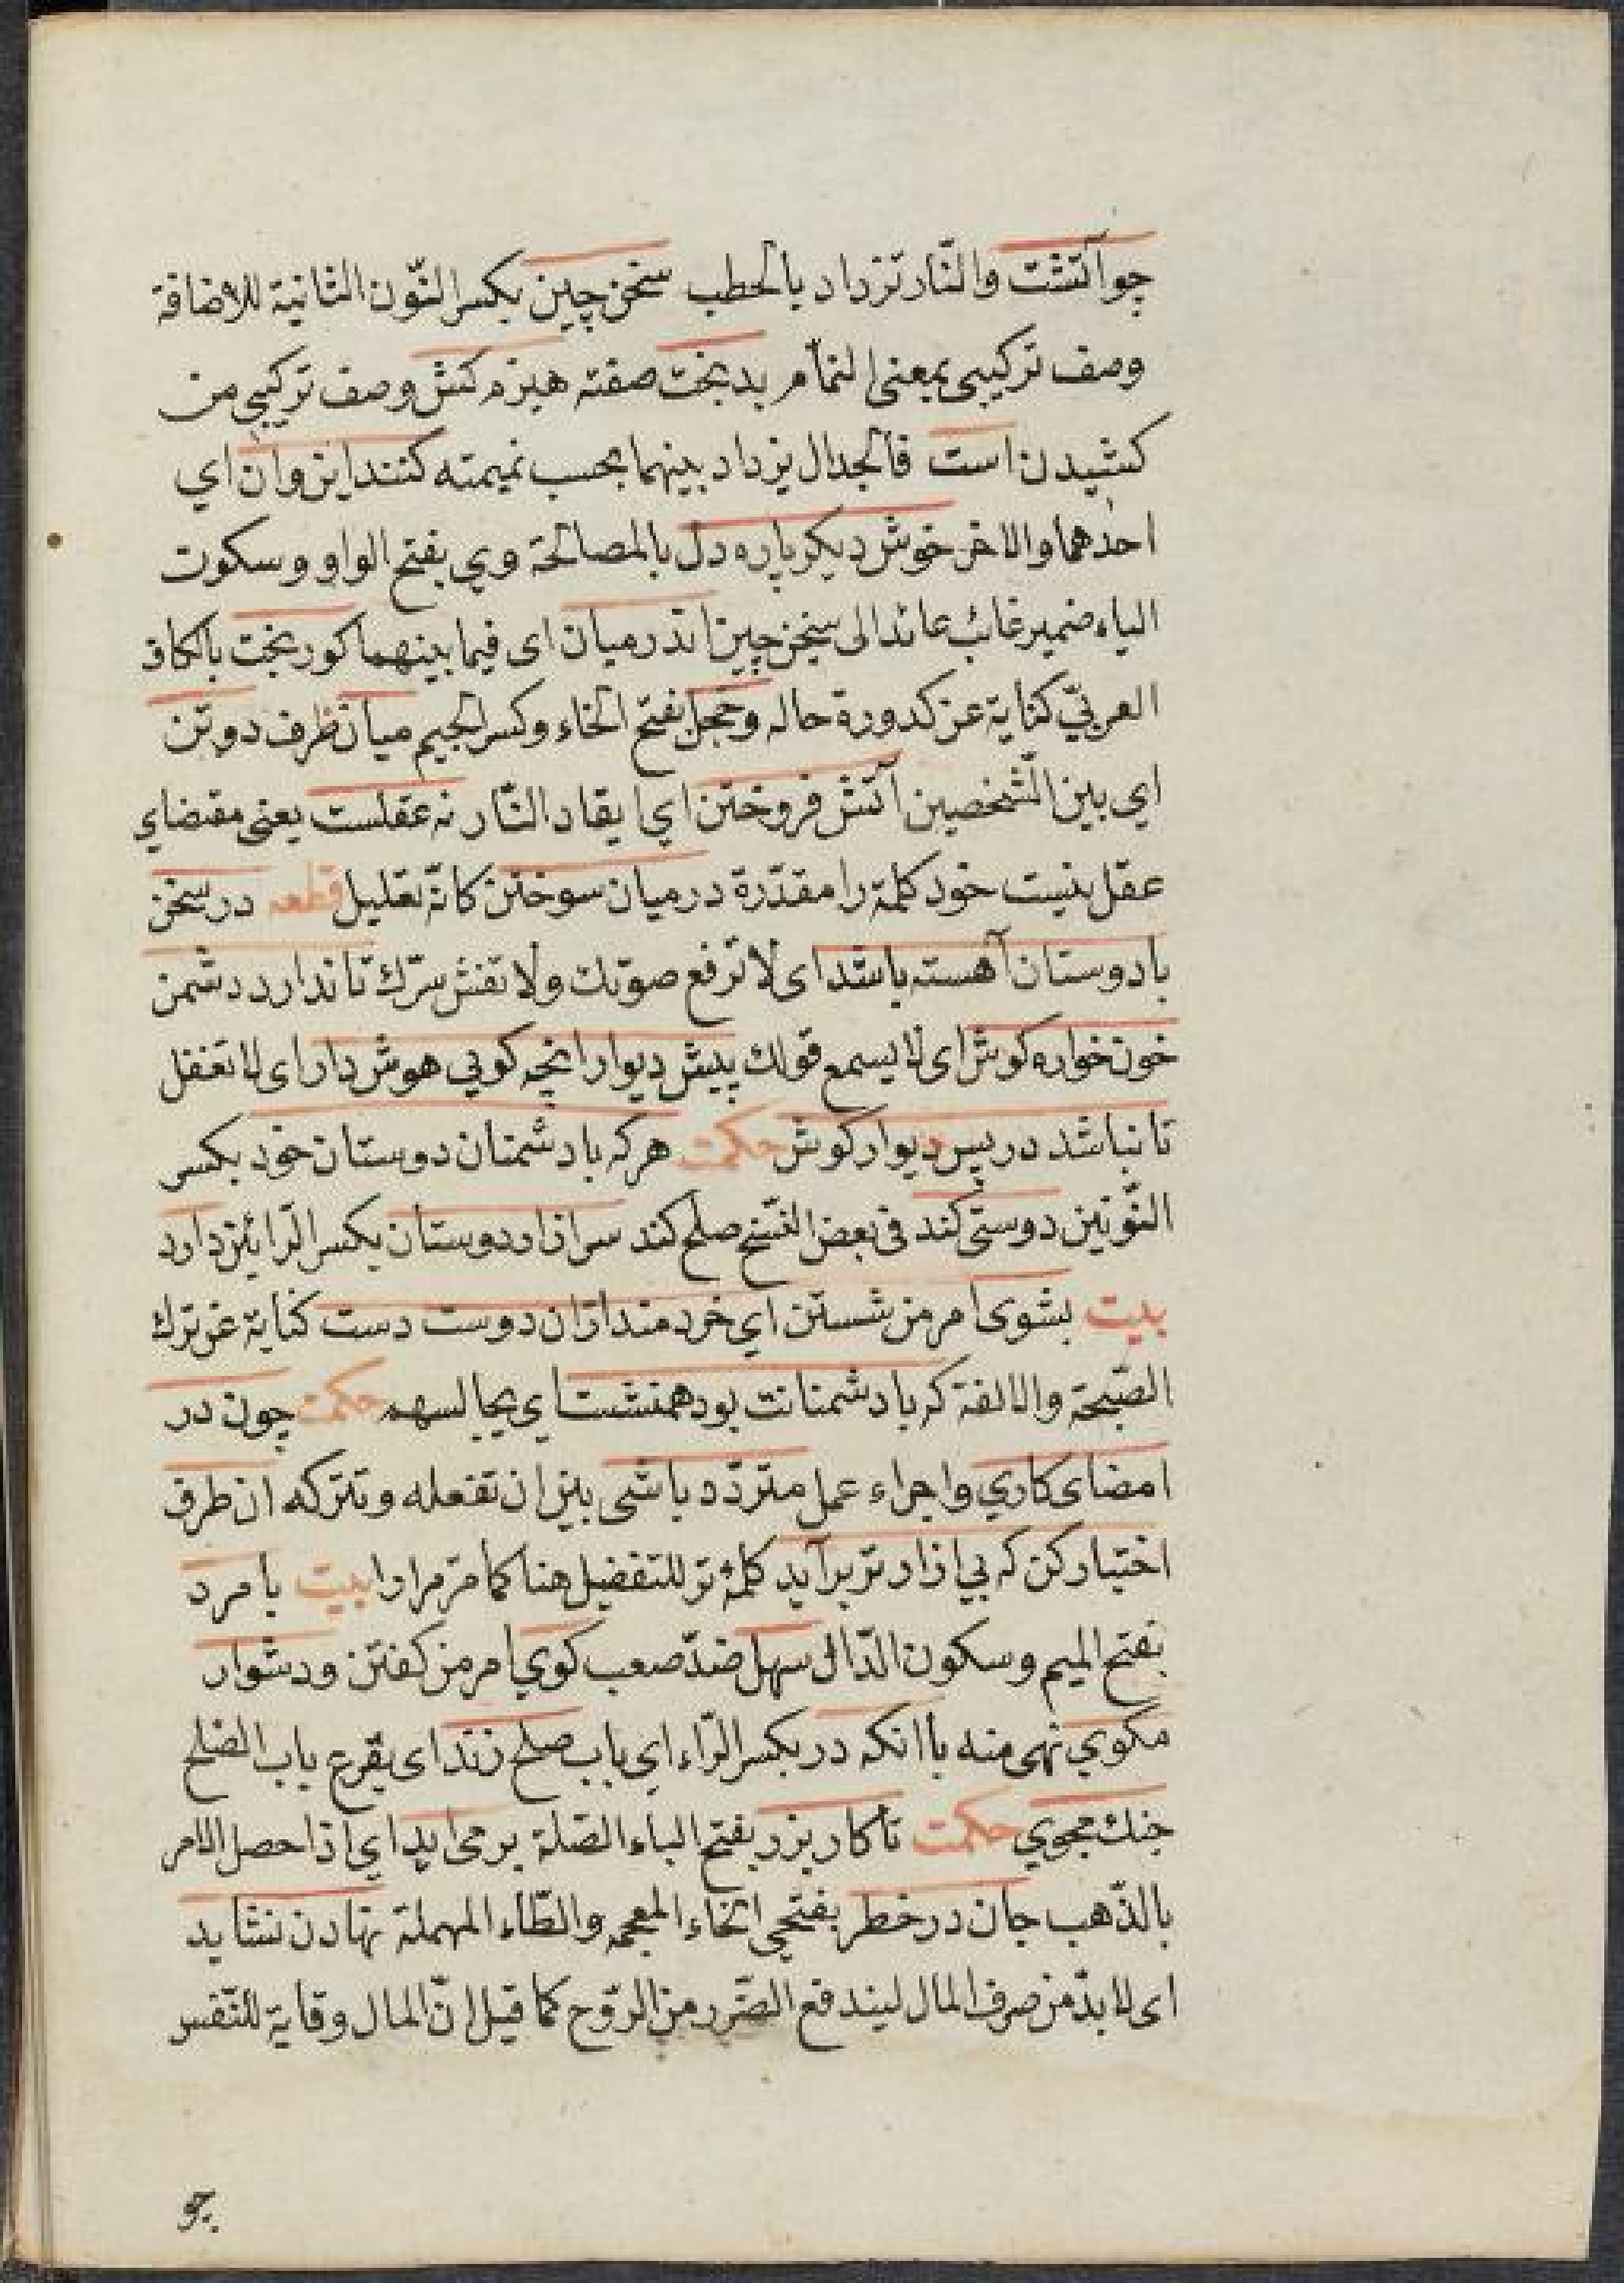 چو آتشت والنّار تزداد بالحطب سخن چین بکسر النّون الثانیة للاضافة
وصف ترکیبی بمعنی النمام بدبخت صفته هیزم کش وصف ترکیبی من
کشیدن است فالجدال یزداد بینهما بحسب نمیمته کنند این وان ای
احدهما والاخر خوش دیکر باره دل بالمصالحة وی بفتح الواو وسکوت
الیاء ضمیر غائب عائد الی سخن چین اندر میان ای فیما بینهما کور بخت بالکاف
العربیّ کنایة عن کدورة حاله وخجل بفتح الخاء وکسر الجیم میان ظرف دو تن
ای بین الشخصین آتش فروختن ای ایقاد النّار نه عقلست یعنی مقتضای
عقل نیست خود کلمة را مقدّرة در میان سوختن کانّه تعلیل قطعه در سخن
با دوستان آهسته باش ای لا ترفع صوتک ولا تفش سرّک تا ندارد دشمن
خون خواره کوش ای لا یسمع قولک پیش دیوار انچه کویی هوش دار ای لا تغفل
تا نباشد در پس دیوار کوش حکمت هرکه با دشمنان دوستان خود بکسر
النّونین دوستی کند فی بعض النّسخ صلح کند سر ازار دوستان بکسر الرّائین دارد
بیت بشوی امر من شستن ای خردمند ازان دوست دست کنایة عن ترک
الصّحبة والالفة که با دشمنانت بود همنشست ای یجالسهم حکمت چون در
امضای کاری واجراء عمل متردّد باشی بین ان تفعله وتترکه ان طرف
اختیار کن که بی ازار تر برآید کلمۀ تر للتفضیل هنا کما مرّ مرارا بیت با مرد
بفتح المیم وسکون الدّال سهل ضدّ صعب کوی امر من کفتن ودشوار
مکوی نهی منه با انکه در بکسر الرّاء ای باب صلح زند ای یقرع باب الصّلح
جنک مجوی حکمت تا کار بزر بفتح الباء الصّلة برمی اید ای اذا حصل الامر
بالذّهب جان در خطر بفتحی الخاء المعجمه والطّاء المهملة نهادن نشاید
ای لا بدّ من صرف المال لیندفع الضّرر من الرّوح کما قیل انّ المال وقایة للنّفس